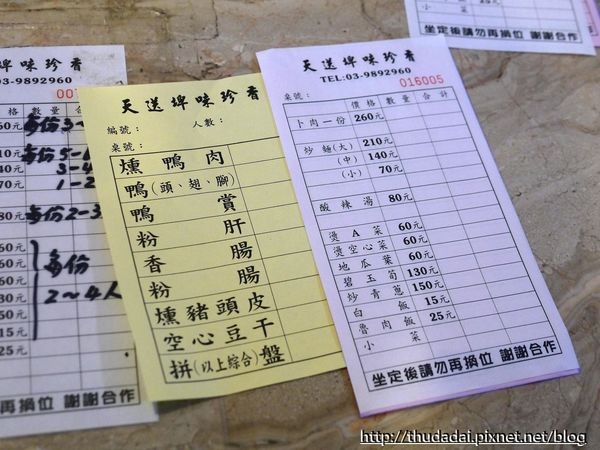 坐定後請勿再換位 謝謝合作
埤味珍香
-9892960
價格 數量 合計
60元 每份3-
10元 每份5-6
40元 3-4
70元 1-2
80元 每份2-3
60元
60元
60元 每份
30元 2~4人
50元
15元
25元
再換位 謝謝合作
天送埤味珍香
編號： 人數：
桌號：
燻鴨肉
鴨(頭、翅、腳)
鴨賞
粉肝
香腸
粉腸
燻豬頭皮
空心豆干
拼(以上綜合)盤
天送埤味珍香
TEL:03-9892960
桌號： 016005
價格 數量 合計
卜肉一份 260元
炒麵(大) 210元
(中) 140元
(小) 70元
酸辣湯 80元
燙A菜 60元
燙空心菜 60元
地瓜葉 60元
碧玉筍 130元
炒青蔥 150元
白飯 15元
魯肉飯 25元
小菜
坐定後請勿再換位 謝謝合作
http://thudadai.pixnet.net/blog